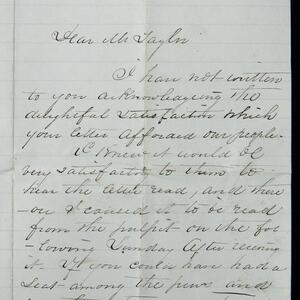 Dear Mr Taylor
I have not written
to you acknowledgeing the
delightful satisfaction which
your letter afforded our people.
I knew it would be
very satisfactory to them to
hear the letter read, and there
-on I caused it to be read
from the pulpit on the fol
-lowing Sunday after receiving
it. If you could have had a
seat among the pews and